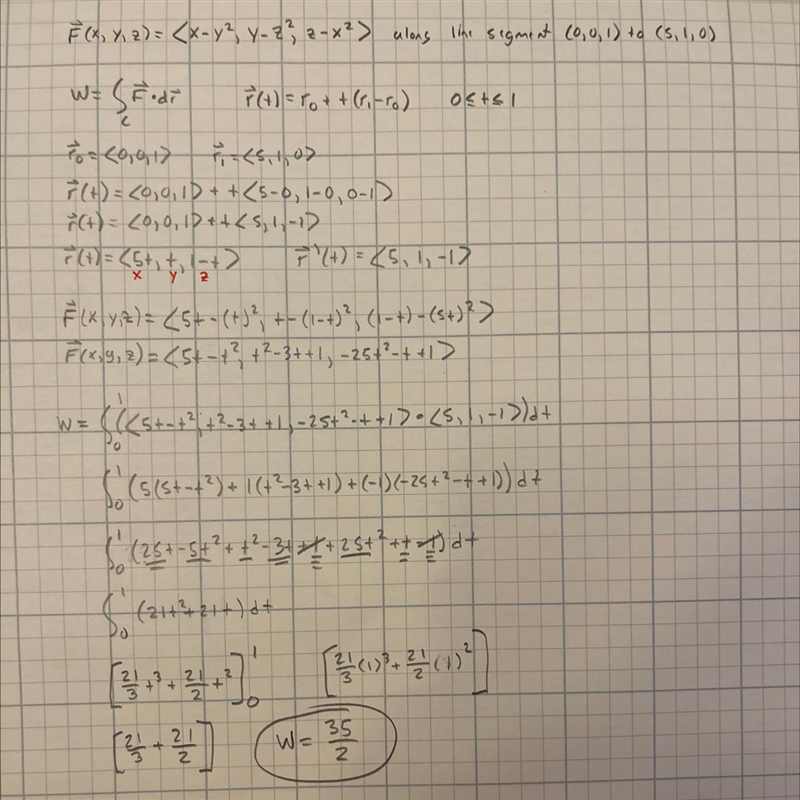 F⃗(x, y, z) = ⟨x-y², y-z², z-x²⟩ along line segment (0,0,1) to (5,1,0)
W = ∫_C F⃗·dr⃗    r⃗(t) = r₀ + t(r₁-r₀)    0≤t≤1
r⃗₀ = ⟨0,0,1⟩    r⃗₁ = ⟨5,1,0⟩
r⃗(t) = ⟨0,0,1⟩ + t⟨5-0, 1-0, 0-1⟩
r⃗(t) = ⟨0,0,1⟩ + t⟨5,1,-1⟩
r⃗(t) = ⟨5t, t, 1-t⟩    r⃗'(t) = ⟨5, 1, -1⟩
x y z
F⃗(x,y,z) = ⟨5t-(t)², t-(1-t)², (1-t)-(5t)²⟩
F⃗(x,y,z) = ⟨5t-t², t²-3t+1, -25t²-t+1⟩
W = ∫₀¹(⟨5t-t², t²-3t+1, -25t²-t+1⟩•⟨5,1,-1⟩)dt
∫₀¹(5(5t-t²)+1(t²-3t+1)+(-1)(-25t²-t+1))dt
∫₀¹(25t-5t²+t²-3t+1+25t²+t-1)dt
∫₀¹(21t²+21t)dt
[21/3 t³ + 21/2 t²]₀¹    [21/3 (1)³ + 21/2 (1)²]
[21/3 + 21/2]    W = 35/2